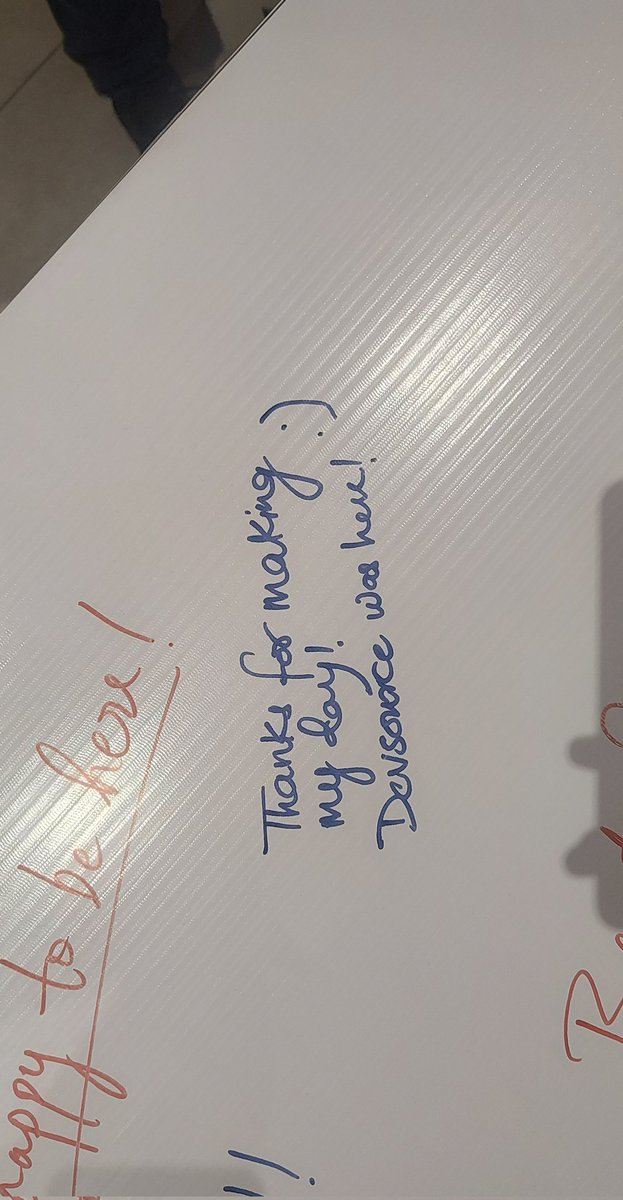 happy to be here!
Thanks for making :)
my day!
Devsource was here!
!!